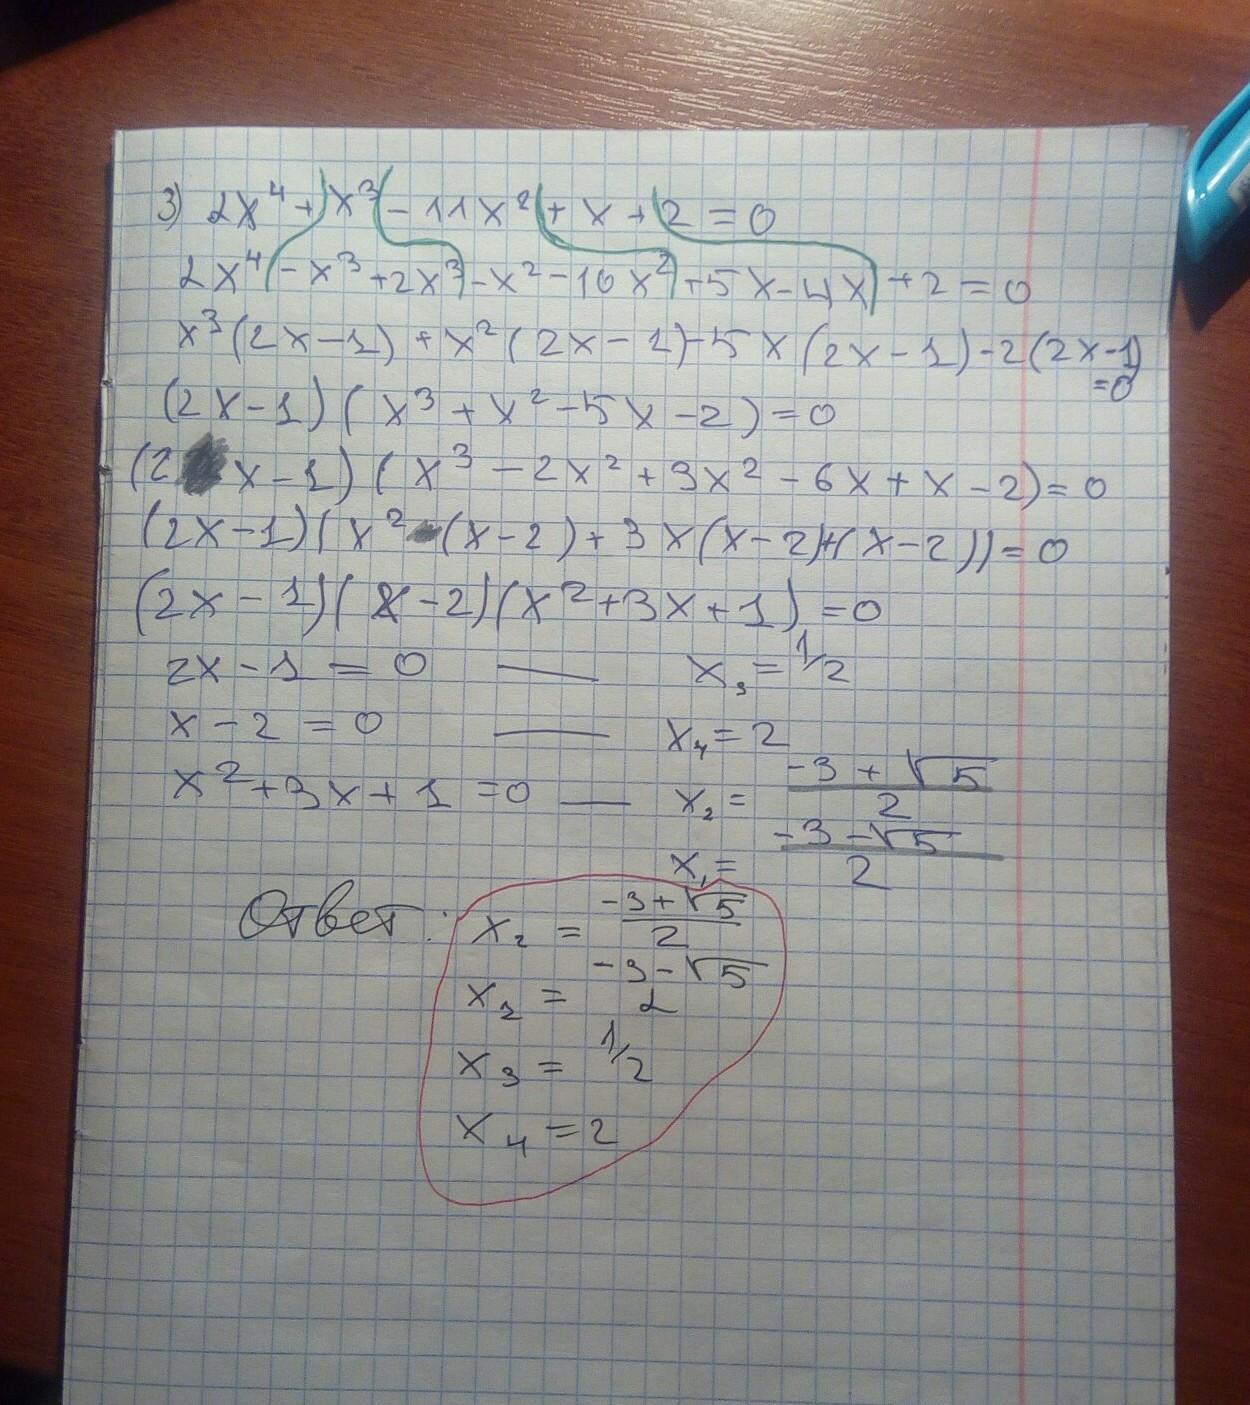 3) 2x⁴ + x³ - 11x² + x + 2 = 0
2x⁴ - x³ + 2x³ - x² - 10x² + 5x - 4x + 2 = 0
x³(2x-1) + x²(2x-1) - 5x(2x-1) - 2(2x-1)
=0
(2x-1)(x³ + x² - 5x - 2) = 0
(2x-1)(x³ - 2x² + 3x² - 6x + x - 2) = 0
(2x-1)(x²(x-2) + 3x(x-2)+(x-2)) = 0
(2x-1)(x-2)(x²+3x+1) = 0
2x-1 = 0 — x₃ = 1/2
x-2 = 0 — x₄ = 2
x²+3x+1 = 0 — x₂ = (-3+√5)/2
x₁ = (-3-√5)/2
Ответ: x₂ = (-3+√5)/2
x₂ = (-3-√5)/2
x₃ = 1/2
x₄ = 2